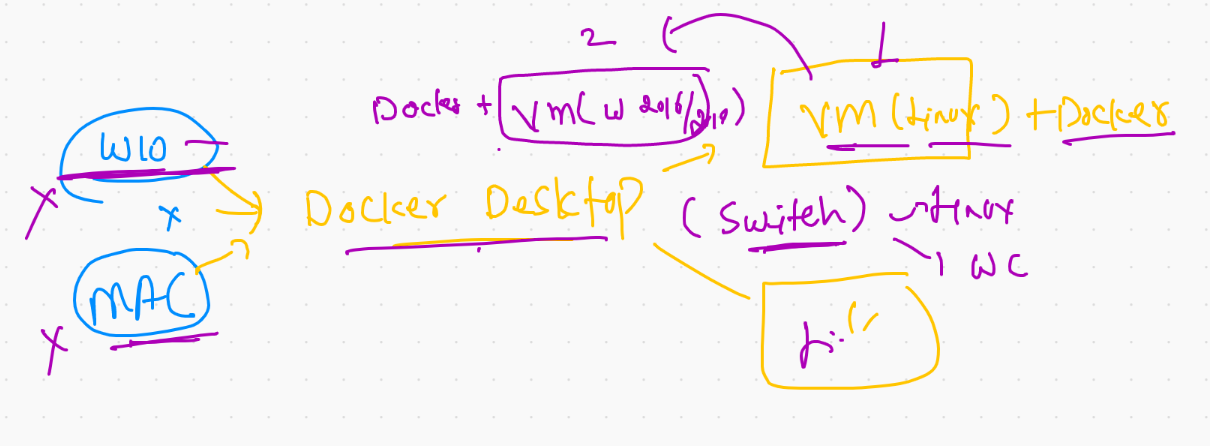 2
1
Docker + VM( W 2016/2019)
VM (Linux) + Docker
W10
x
x
Docker Desktop
(Switch)
Linux
WC
MAC
x